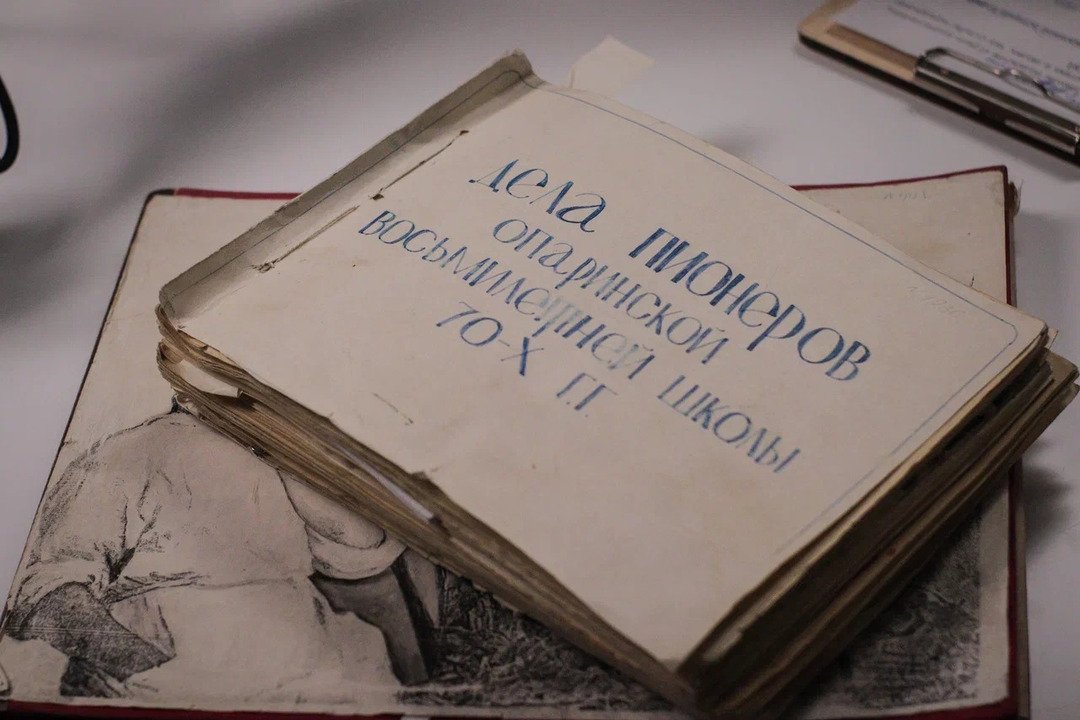 дела пионеров
опаринской
восьмилетней школы
70-х г.г